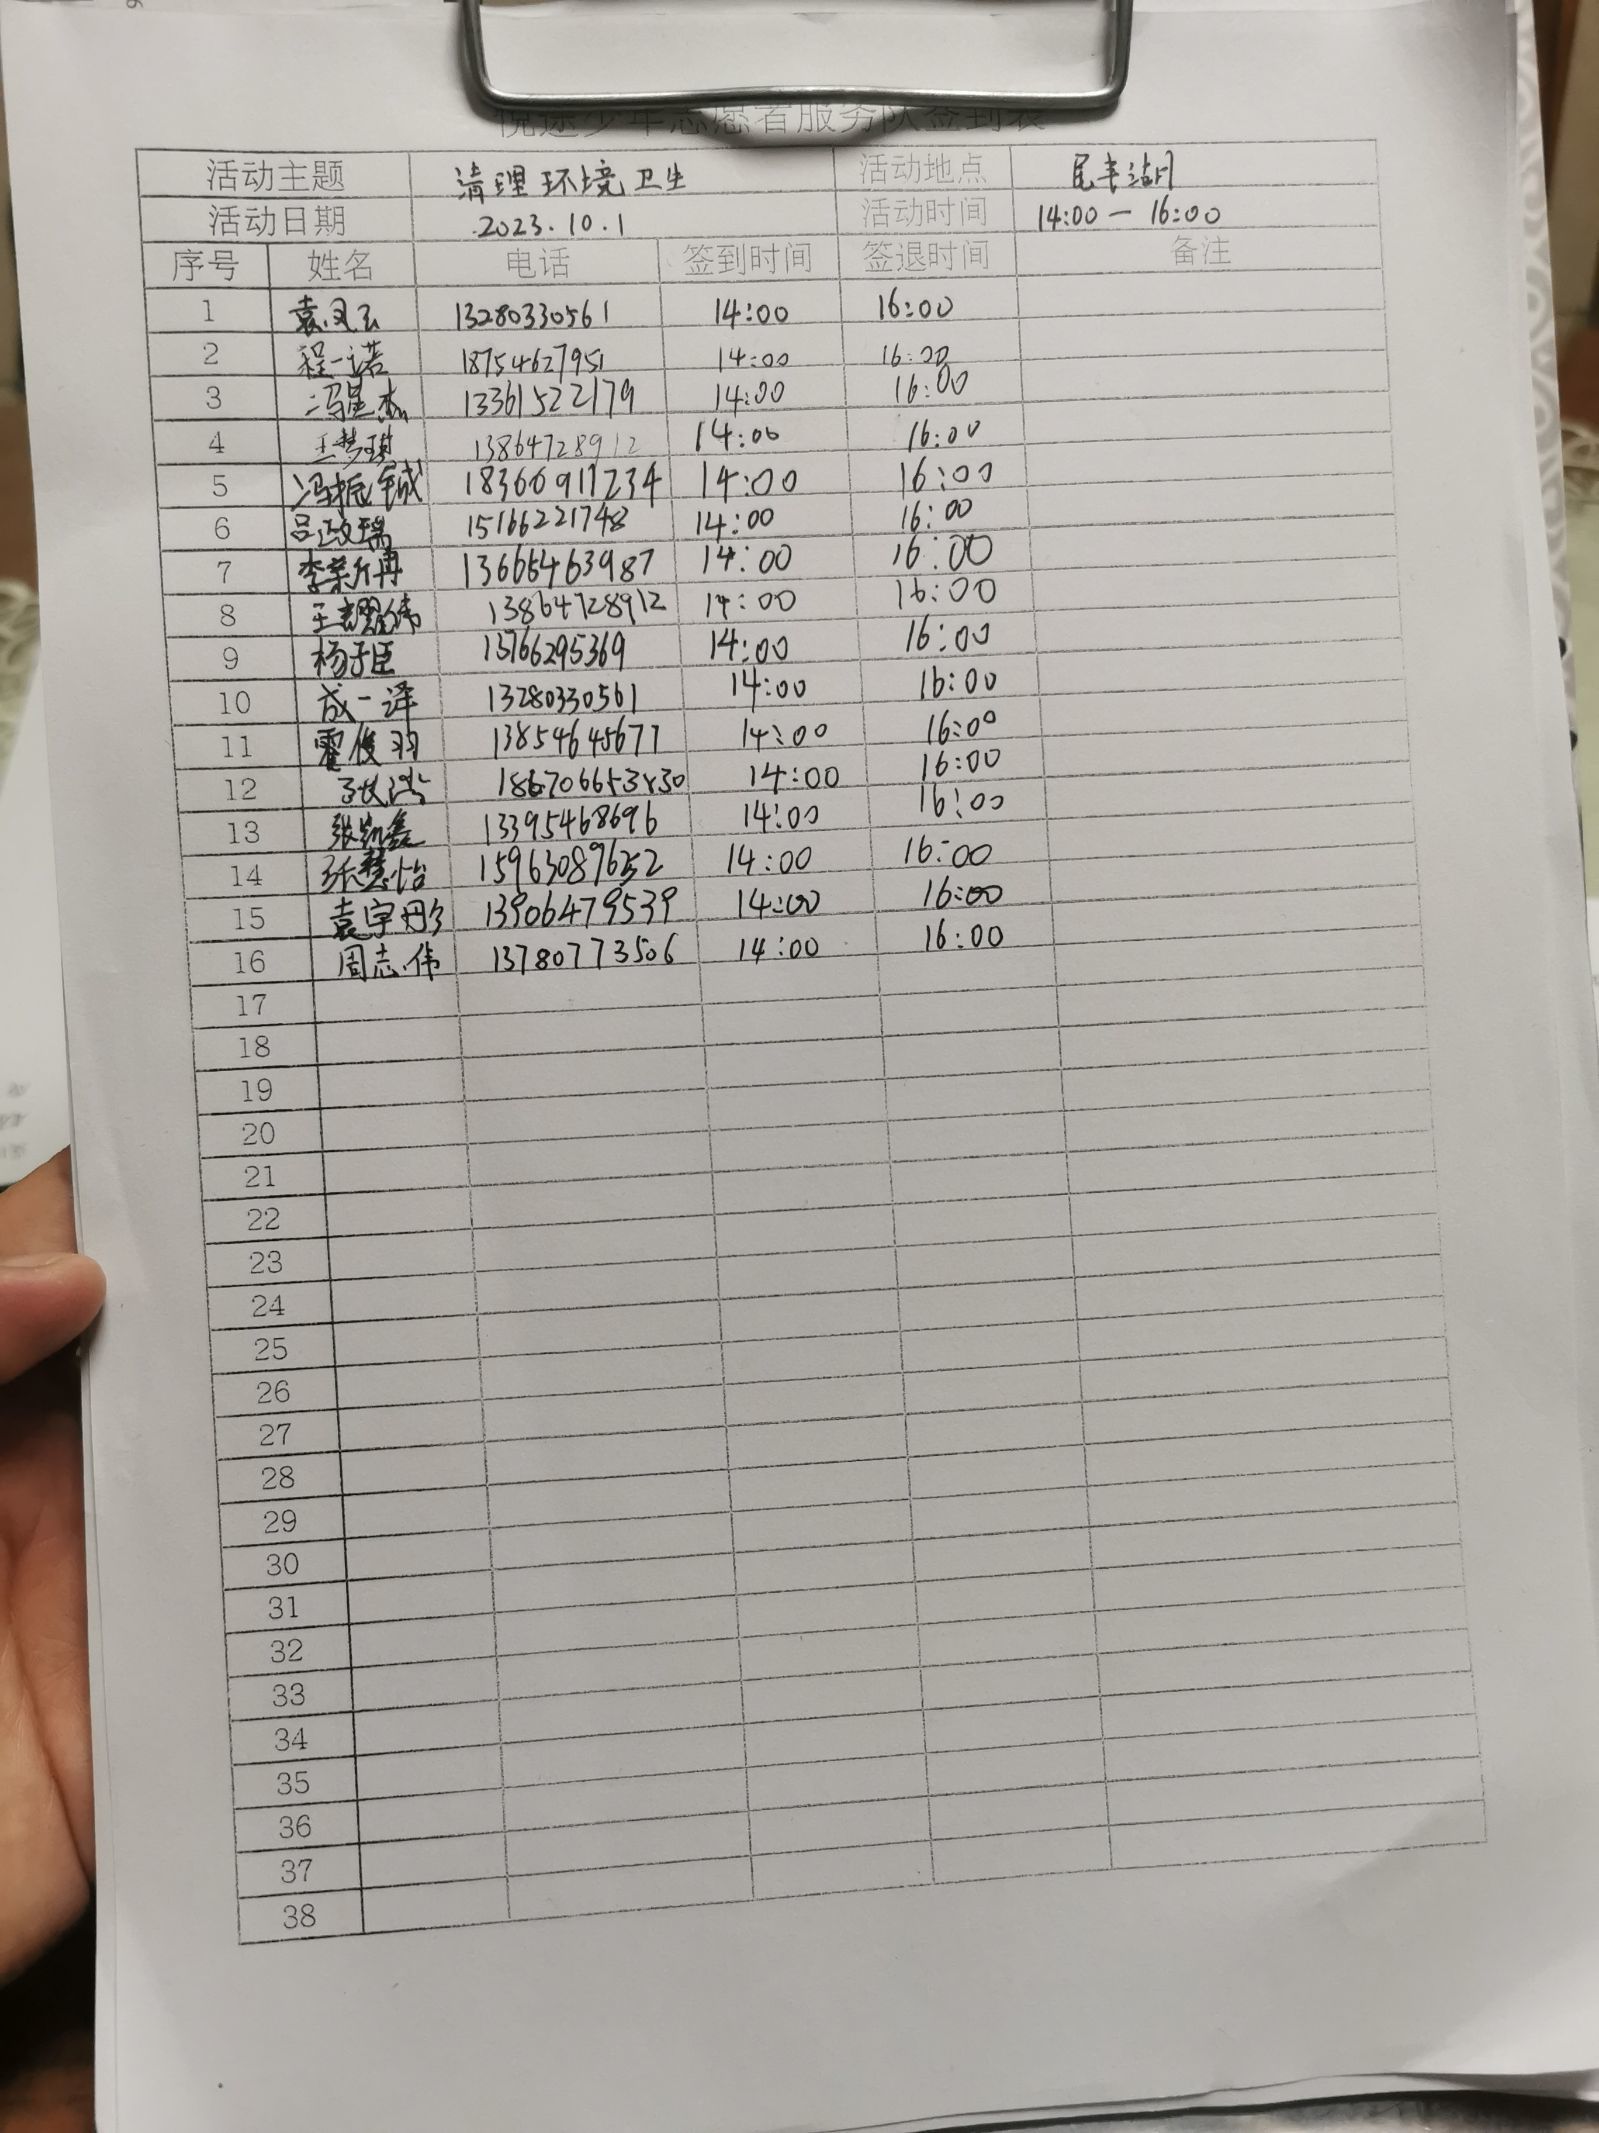 悦途少年志愿者服务队签到表
活动主题 清理环境卫生 活动地点 民丰湖
活动日期 2023.10.1 活动时间 14:00-16:00
序号 姓名 电话 签到时间 签退时间 备注
1 袁凤云 13280330561 14:00 16:00
2 程一诺 18754627951 14:00 16:00
3 冯星杰 13361522179 14:00 16:00
4 王梦琪 13864728912 14:00 16:00
5 冯振铖 18366911234 14:00 16:00
6 吕政瑞 15166221748 14:00 16:00
7 13665463987 14:00 16:00
8 王耀伟 13864728912 14:00 16:00
9 杨子臣 13766295369 14:00 16:00
10 成一泽 13280330561 14:00 16:00
11 霍俊羽 13854645677 14:00 16:00
12 14:00 16:00
13 张凯鑫 13395468696 14:00 16:00
14 张慧怡 15963089652 14:00 16:00
15 袁宇彤 13906479539 14:00 16:00
16 周志伟 13780773506 14:00 16:00
17
18
19
20
21
22
23
24
25
26
27
28
29
30
31
32
33
34
35
36
37
38